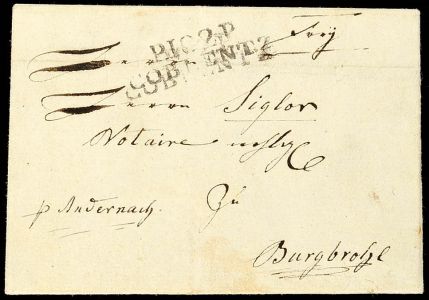 Frey
P.102.P
COBLENTZ
Herrn
Herrn Siglor
Notaire
p Andernach. Zu
Burgbrohl